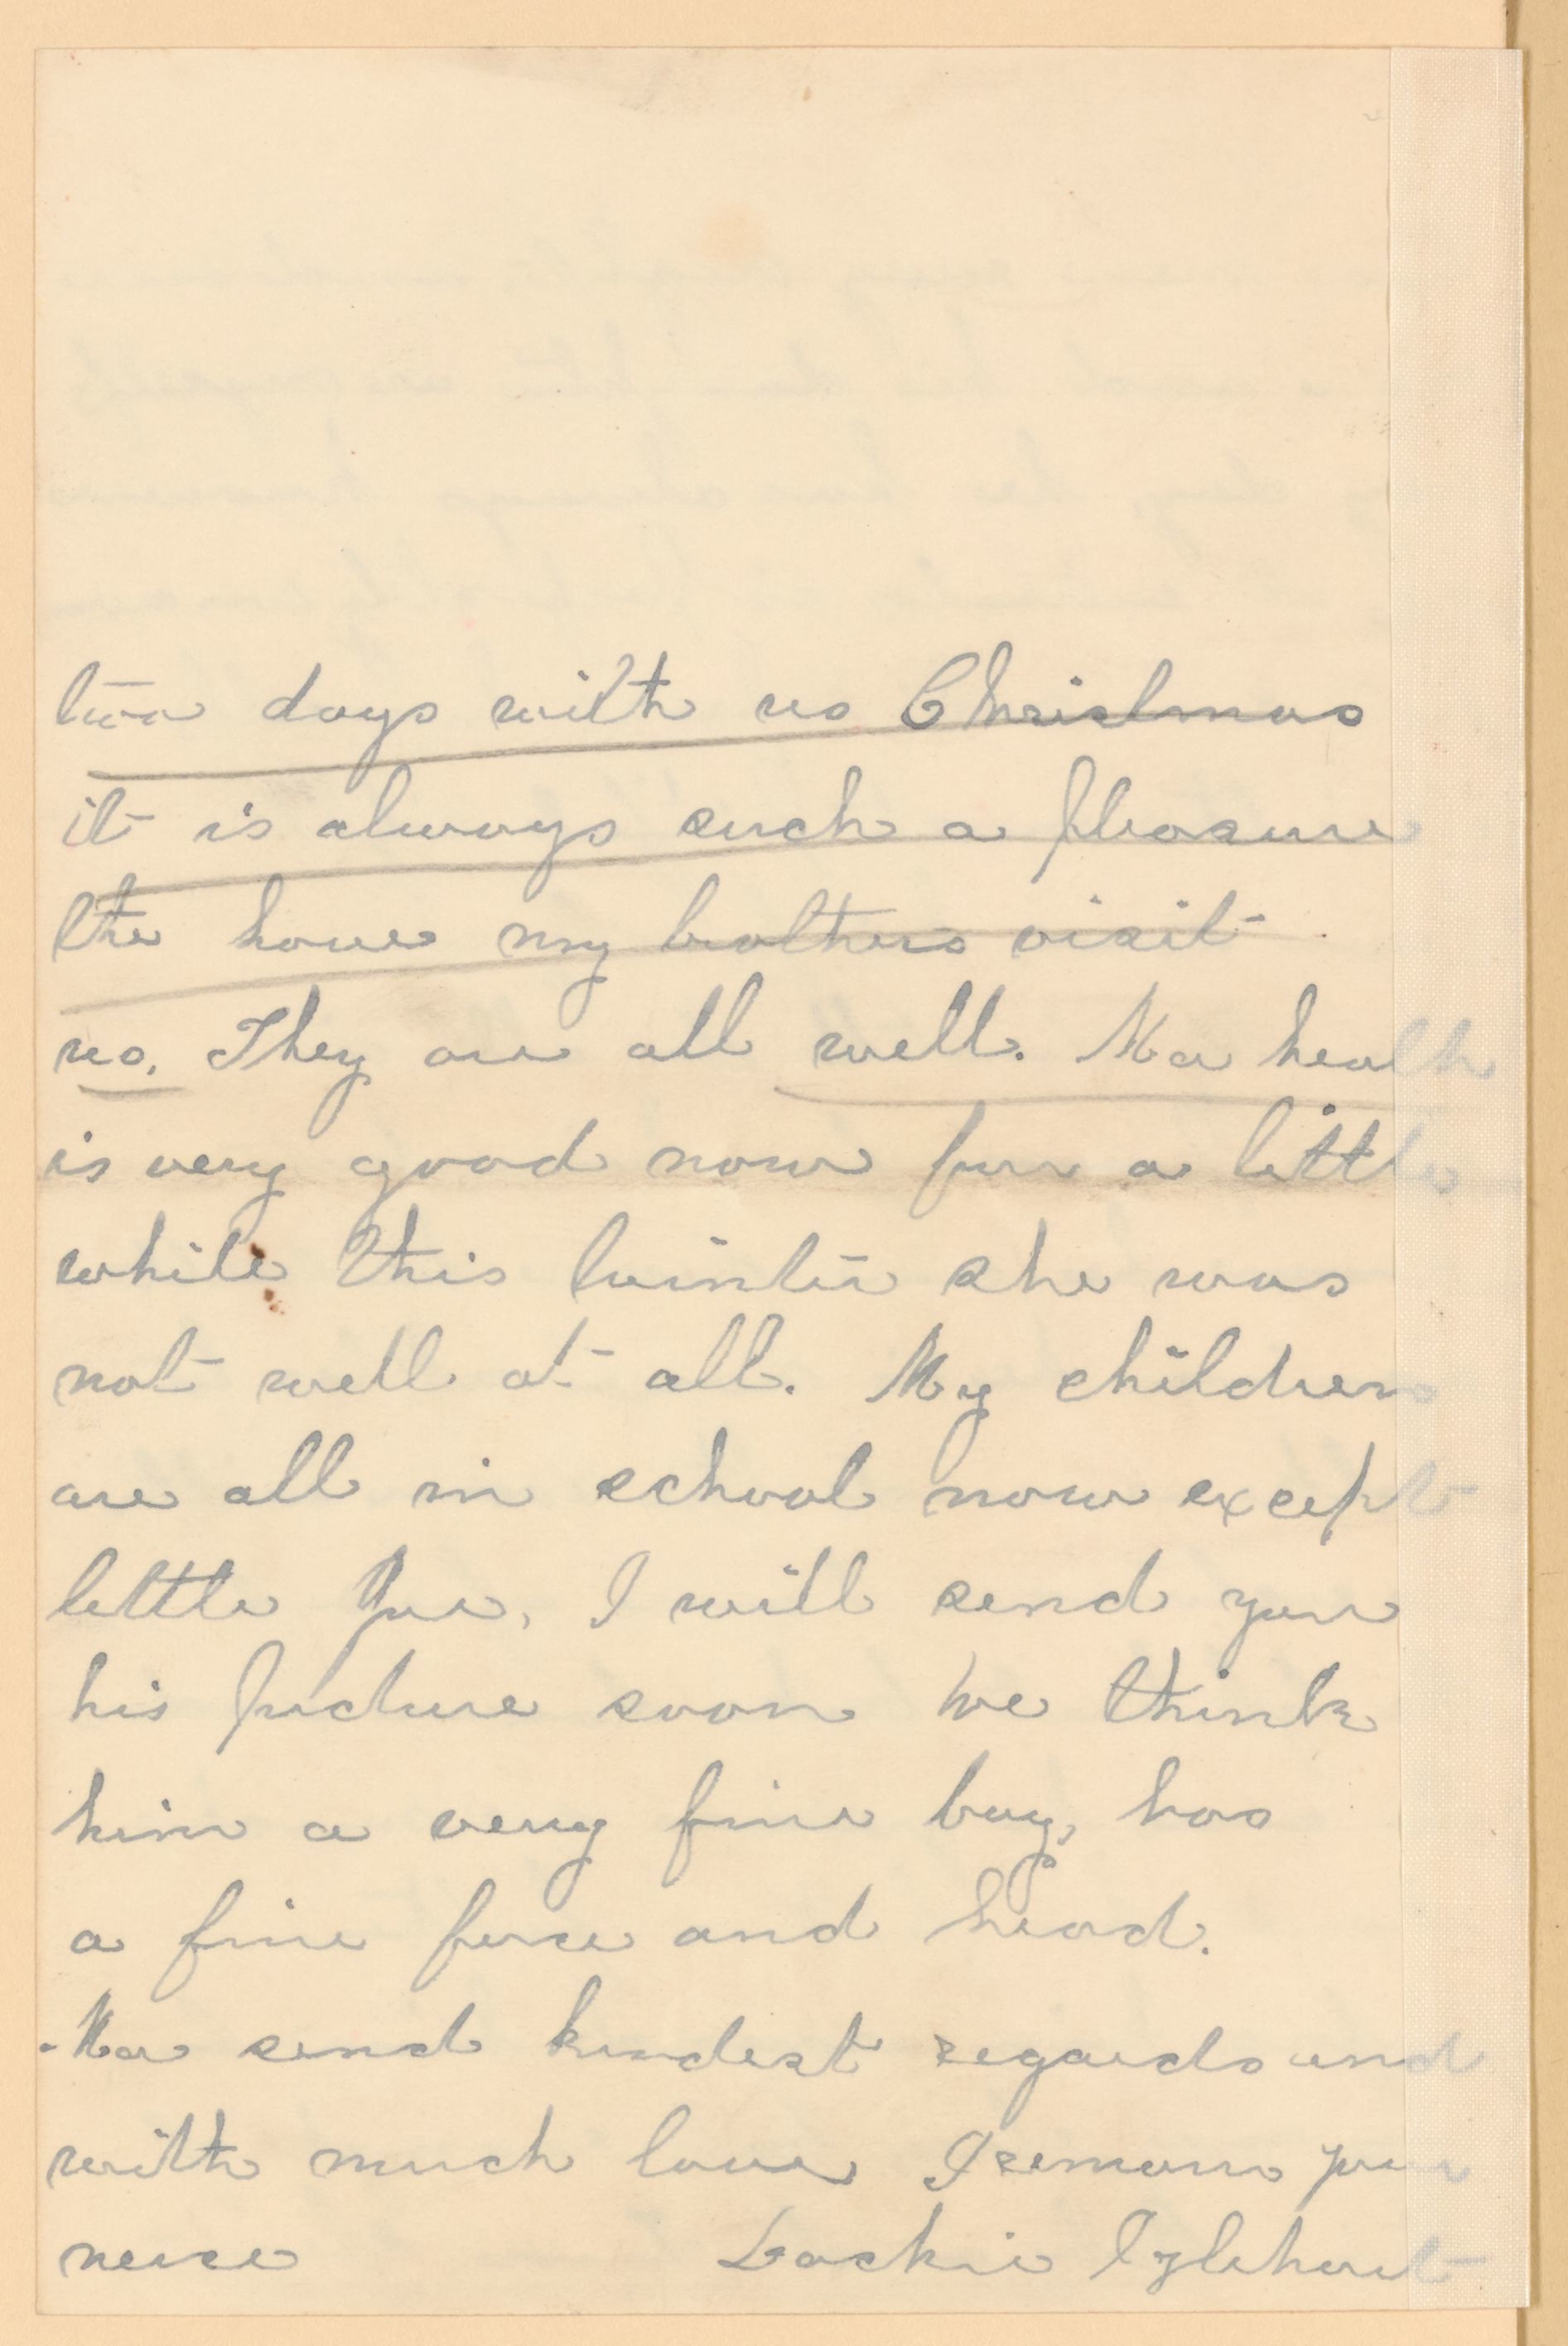 two days with us Christmas
it is always such a pleasure
the have my brothers visit
us. They are all well. Ma health
is very good now for a little
while this winter she was
not well at all. My children
are all in school now except
little Joe, I will send you
his picture soon we think
him a very fine boy, has
a fine face and head.
Ma send kindest regards and
with much love I remain your
neice Lockie Iglehart